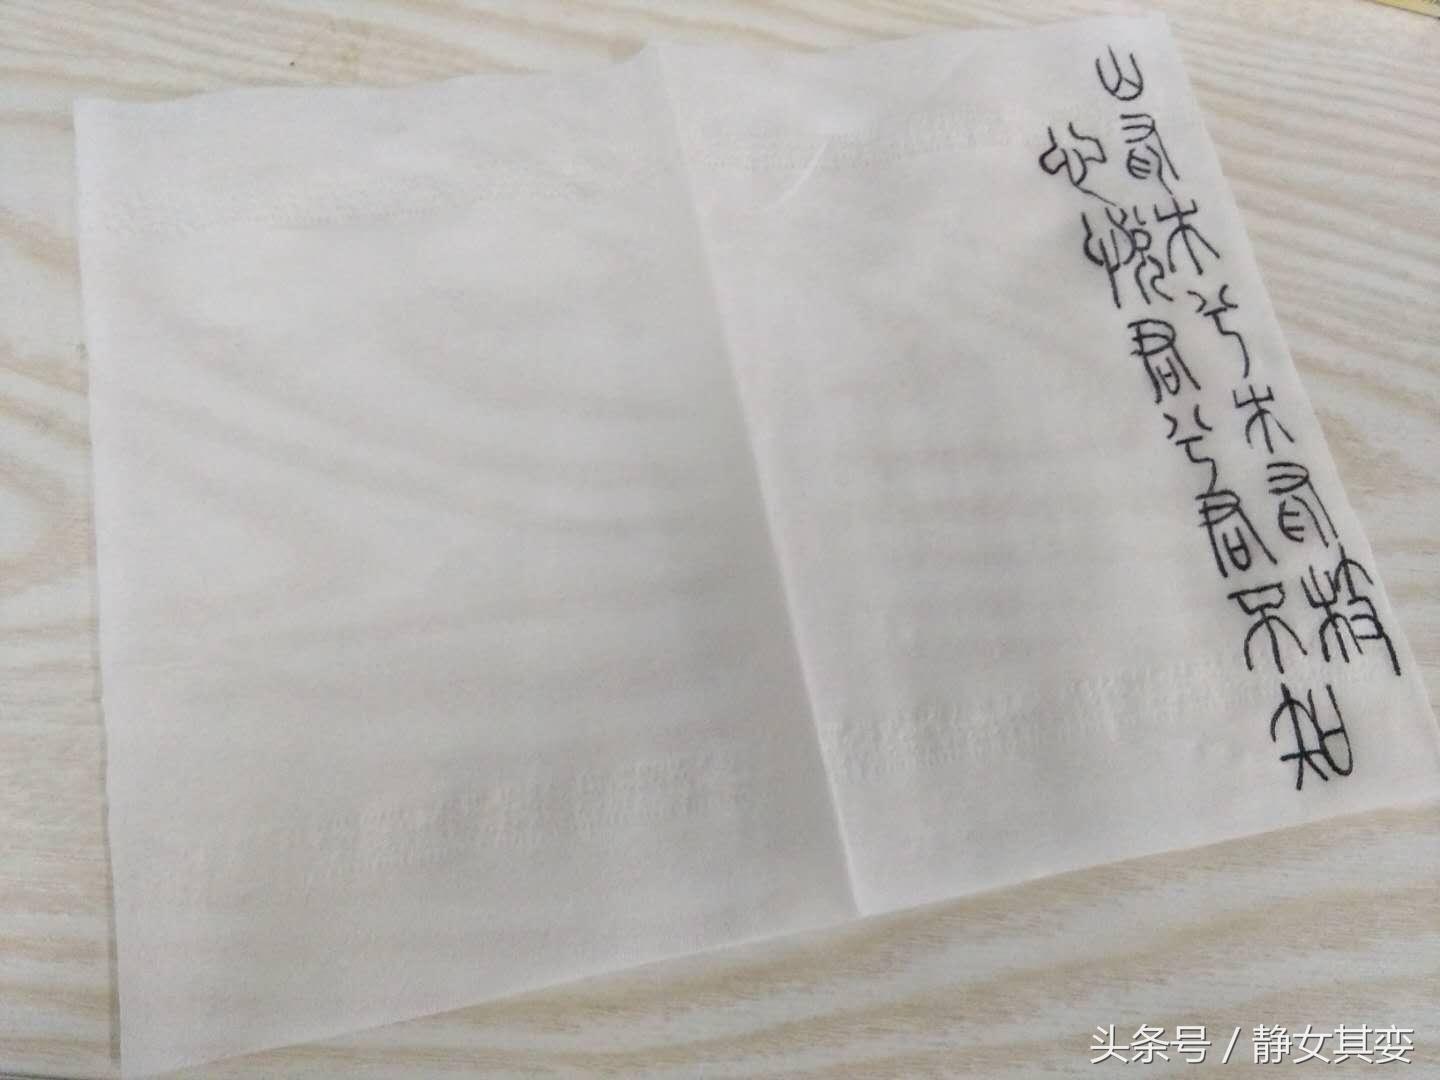 山有木兮木有枝
心悦君兮君不知
头条号 / 静女其娈